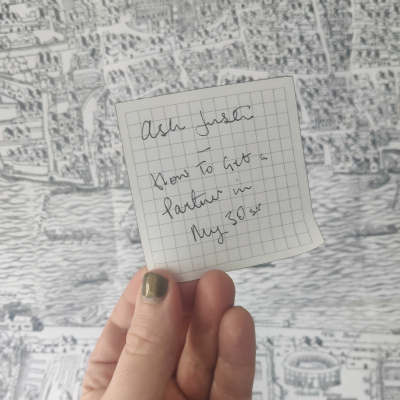 Ask Justi
—
How To Get a
Partner in
My 30s